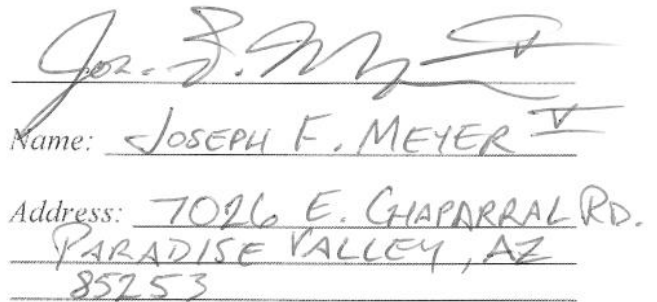 Jos. F. M
Name: JOSEPH F. MEYER V
Address: 7026 E. CHAPARRAL RD.
PARADISE VALLEY, AZ
85253